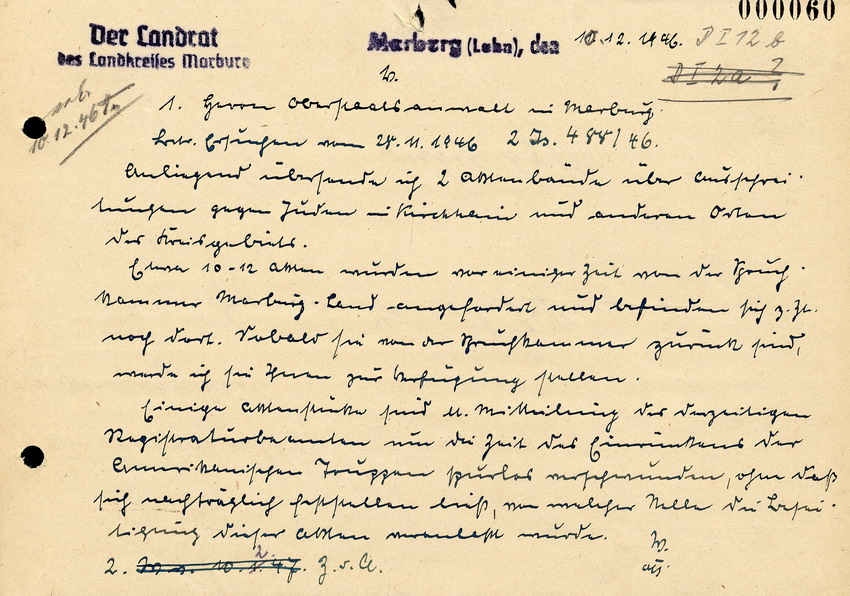 000060
Der Landrat
des Landkreises Marburg
Marburg (Lahn), den 10.12.1946. D I 12 b
D I 2a ?
10.12.46
1. Herrn Oberstaatsanwalt in Marburg.
Betr. Ersuchen vom 28.11.1946 2 Js. 488/46.
Anliegend übersende ich 2 Aktenbände über Ausschrei-
tungen gegen Juden in Kirchhain und anderen Orten
des Kreisgebiets.
Etwa 10-12 Akten wurden vor einiger Zeit von der Spruch-
kammer Marburg-Land angefordert und befinden sich z. Zt.
noch dort. Sobald sie von der Spruchkammer zurück sind,
werde ich sie Ihnen zur Verfügung stellen.
Einige Aktenstücke sind lt. Mitteilung des derzeitigen
Registraturbeamten um die Zeit des Einrückens der
Amerikanischen Truppen spurlos verschwunden, ohne daß
sich nachträglich feststellen ließ, von welcher Stelle die Besei-
tigung dieser Akten veranlaßt wurde.
2. W. v. 10.2.47. Z. d. A.